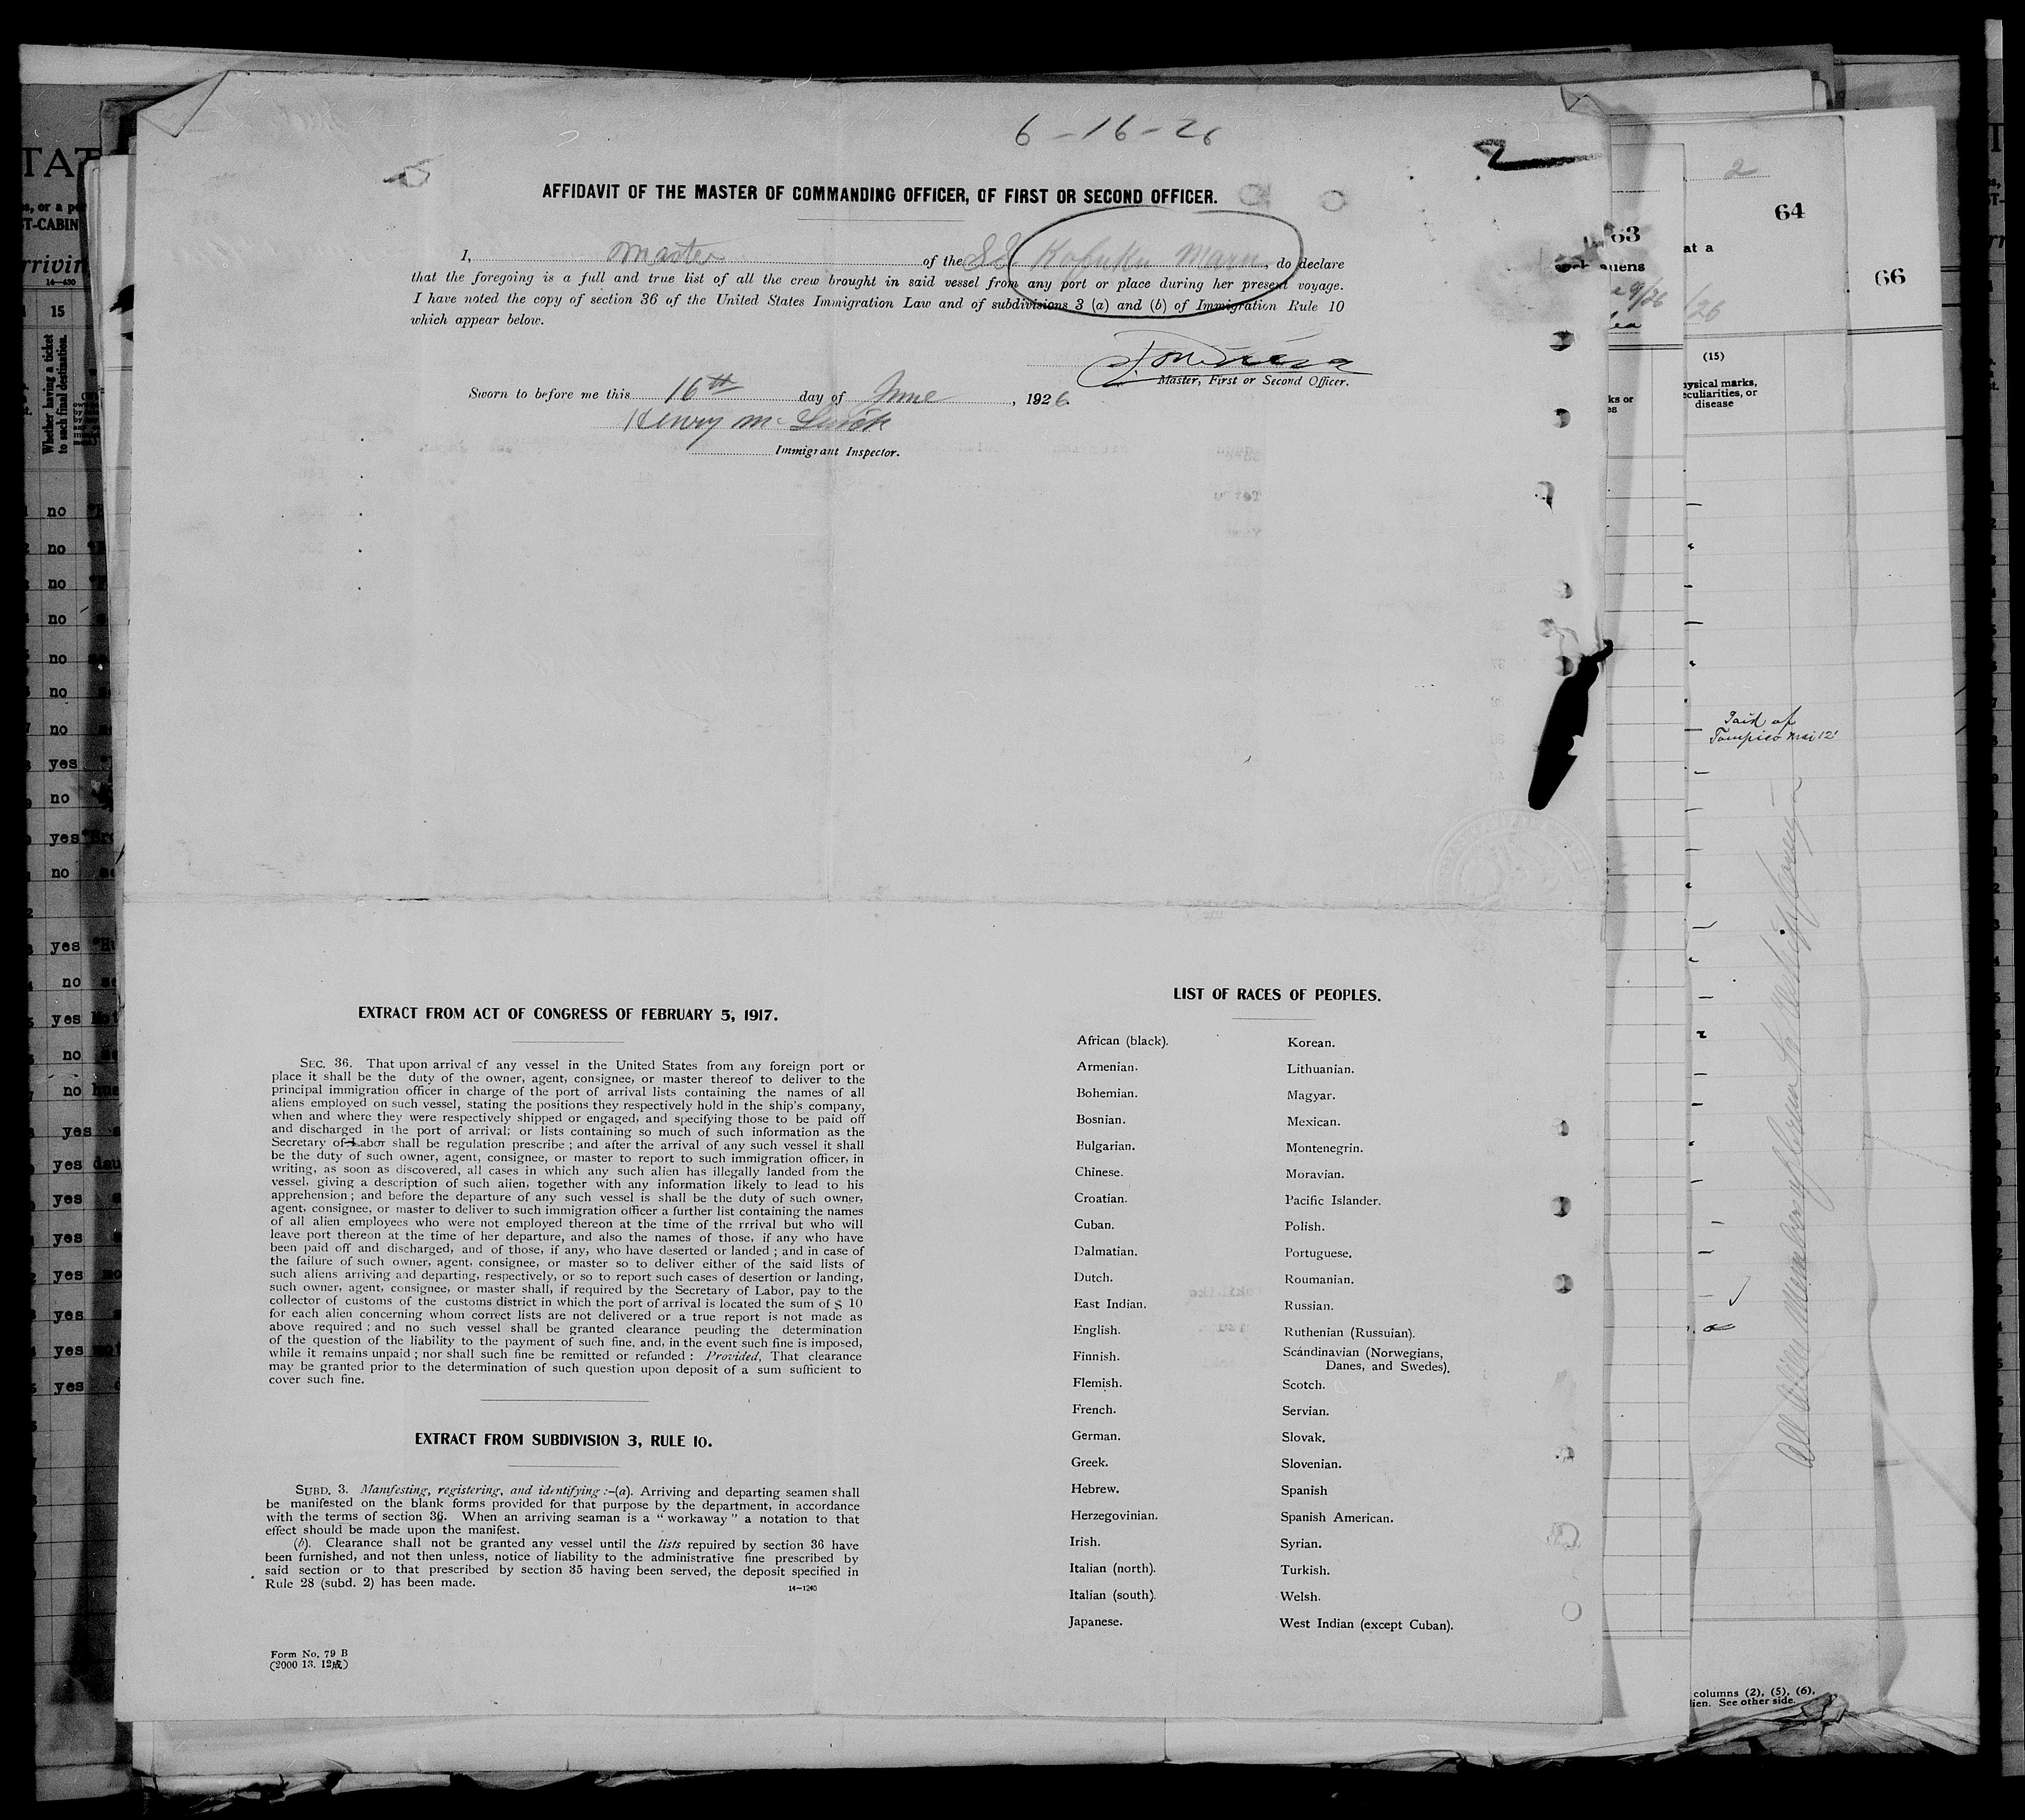 6-16-26
AFFIDAVIT OF THE MASTER OF COMMANDING OFFICER, OF FIRST OR SECOND OFFICER.
I, Master of the SS Kofuku Maru, do declare
that the foregoing is a full and true list of all the crew brought in said vessel from any port or place during her present voyage.
I have noted the copy of section 36 of the United States Immigration Law and of subdivisions 3 (a) and (b) of Immigration Rule 10
which appear below.
Master, First or Second Officer.
Sworn to before me this 16th day of June, 1926.
Henry Mc
Immigrant Inspector.
EXTRACT FROM ACT OF CONGRESS OF FEBRUARY 5, 1917.
SEC. 36. That upon arrival of any vessel in the United States from any foreign port or
place it shall be the duty of the owner, agent, consignee, or master thereof to deliver to the
principal immigration officer in charge of the port of arrival lists containing the names of all
aliens employed on such vessel, stating the positions they respectively hold in the ship's company,
when and where they were respectively shipped or engaged, and specifying those to be paid off
and discharged in the port of arrival; or lists containing so much of such information as the
Secretary of Labor shall be regulation prescribe; and after the arrival of any such vessel it shall
be the duty of such owner, agent, consignee, or master to report to such immigration officer, in
writing, as soon as discovered, all cases in which any such alien has illegally landed from the
vessel, giving a description of such alien, together with any information likely to lead to his
apprehension; and before the departure of any such vessel is shall be the duty of such owner,
agent, consignee, or master to deliver to such immigration officer a further list containing the names
of all alien employees who were not employed thereon at the time of the rrrival but who will
leave port thereon at the time of her departure, and also the names of those, if any who have
been paid off and discharged, and of those, if any, who have deserted or landed; and in case of
the failure of such owner, agent, consignee, or master so to deliver either of the said lists of
such aliens arriving and departing, respectively, or so to report such cases of desertion or landing,
such owner, agent, consignee, or master shall, if required by the Secretary of Labor, pay to the
collector of customs of the customs district in which the port of arrival is located the sum of $ 10
for each alien concerning whom correct lists are not delivered or a true report is not made as
above required; and no such vessel shall be granted clearance peuding the determination
of the question of the liability to the payment of such fine, and, in the event such fine is imposed,
while it remains unpaid; nor shall such fine be remitted or refunded: Provided, That clearance
may be granted prior to the determination of such question upon deposit of a sum sufficient to
cover such fine.
EXTRACT FROM SUBDIVISION 3, RULE 10.
SUBD. 3. Manifesting, registering, and identifying:-(a). Arriving and departing seamen shall
be manifested on the blank forms provided for that purpose by the department, in accordance
with the terms of section 36. When an arriving seaman is a "workaway" a notation to that
effect should be made upon the manifest.
(b). Clearance shall not be granted any vessel until the lists repuired by section 36 have
been furnished, and not then unless, notice of liability to the administrative fine prescribed by
said section or to that prescribed by section 35 having been served, the deposit specified in
Rule 28 (subd. 2) has been made.
14-1240
Form No. 79 B
(2000 13. 12成)
LIST OF RACES OF PEOPLES.
African (black).
Armenian.
Bohemian.
Bosnian.
Bulgarian.
Chinese.
Croatian.
Cuban.
Dalmatian.
Dutch.
East Indian.
English.
Finnish.
Flemish.
French.
German.
Greek.
Hebrew.
Herzegovinian.
Irish.
Italian (north).
Italian (south).
Japanese.
Korean.
Lithuanian.
Magyar.
Mexican.
Montenegrin.
Moravian.
Pacific Islander.
Polish.
Portuguese.
Roumanian.
Russian.
Ruthenian (Russuian).
Scandinavian (Norwegians,
Danes, and Swedes).
Scotch.
Servian.
Slovak.
Slovenian.
Spanish
Spanish American.
Syrian.
Turkish.
Welsh.
West Indian (except Cuban).
63
2
64
66
at a
(15)
physical marks,
peculiarities, or
disease
Paid of
Tampico Mai 12
All Alien Members of Crew to Reship Foreign
columns (2), (5), (6),
lien. See other side.
15
Whether having a ticket
to such final destination.
no
no
no
no
no
no
no
yes
no
yes
no
yes
no
yes
no
no
yes
yes
yes
yes
yes
yes
yes
yes